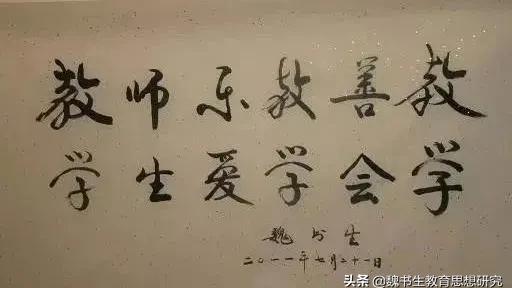 教师乐教善教
学生爱学会学
魏书生
二〇一一年七月二十一日
头条 @魏书生教育思想研究